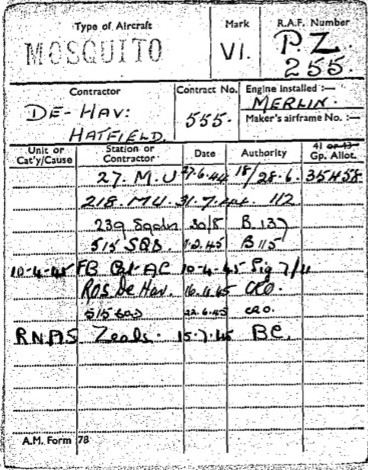 Type of Aircraft Mark R.A.F. Number
MOSQUITO VI. P.Z.
255.
Contractor Contract No. Engine installed :—
DE-HAV: MERLIN.
HATFIELD. 555. Maker's airframe No. :—
Unit or Cat'y/Cause Station or Contractor Date Authority 41 or 43 Gp. Allot.
27. M.U 27-6-44 18/28.6. 35458
218. MU 31.7.44. 112
239 Sqdn 30/8 B.137
515 SQD. 1.2.45 B115
10-4-45 FB AC 10-4-45 Sig 7/4
ROS De Hav. 16.4.45 CRO.
515 Sqd 22.6.45 CRO.
R.N.A.S Zeals. 15.7.45 BC.
A.M. Form 78